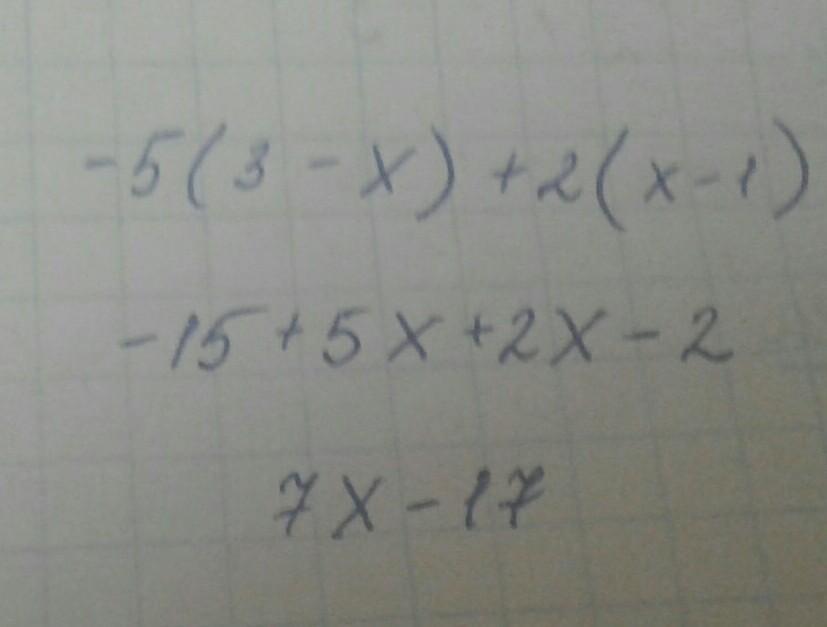 -5(3 - x) + 2(x - 1)
-15 + 5x + 2x - 2
7x - 17